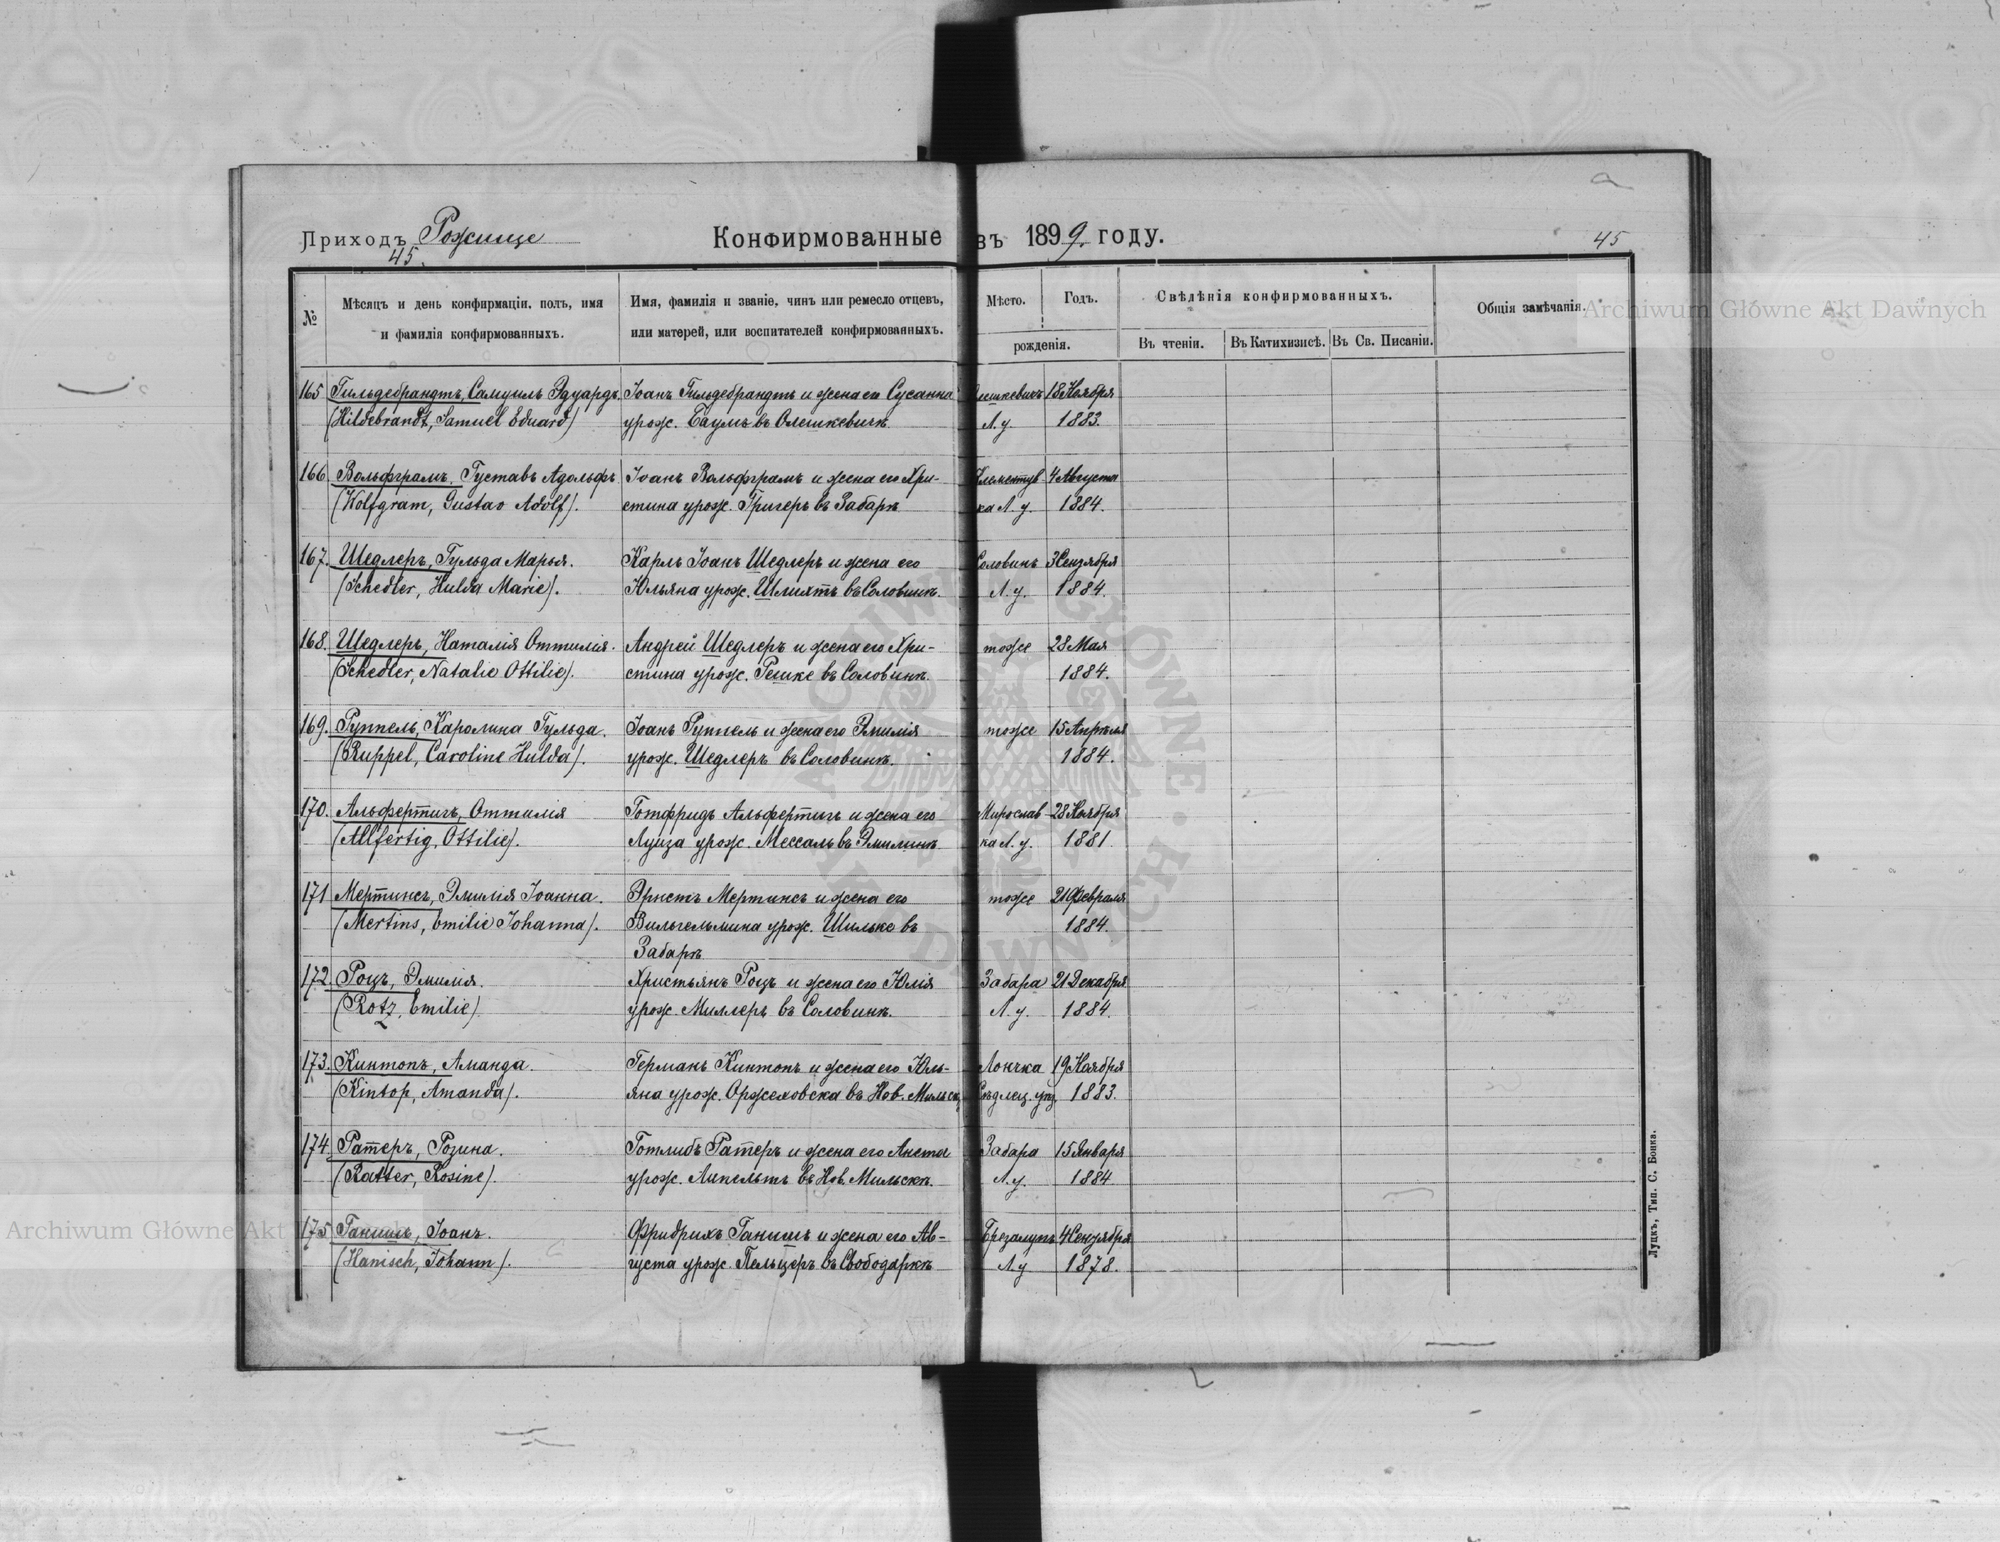 Приходъ Рожище
45.
Конфирмованные въ 1899. году.
45
№
Мѣсяцъ и день конфирмаціи, полъ, имя
и фамилія конфирмованныхъ.
Имя, фамилія и званіе, чинъ или ремесло отцевъ,
или матерей, или воспитателей конфирмованныхъ.
Мѣсто.
Годъ.
рожденія.
Свѣдѣнія конфирмованныхъ.
Въ чтеніи.
Въ Катихизисѣ.
Въ Св. Писаніи.
Общія замѣчанія.
Archiwum Główne Akt Dawnych
165 Гильдебрандтъ, Самуилъ Эдуардъ. Іоанъ Гильдебрандтъ и жена его Сусанна 18 Ноября
(Hildebrandt, Samuel Eduard) урож. Баумъ въ Олешкевичѣ Л.у. 1883.
166. Вольфграмъ, Густавъ Адольфъ Іоанъ Вольфграмъ и жена его Хри- 4 Августа
(Wolfgram, Gustav Adolf). стина урож. Григеръ въ Забарѣ ка Л.у. 1884.
167. Шедлеръ, Гульда Марья. Карлъ Іоанъ Шедлеръ и жена его Соловинъ 3 Сентября
(Schedler, Hulda Marie). Юльяна урож. Шмитъ въ Соловинѣ. Л.у. 1884.
168. Шедлеръ, Наталія Оттилія. Андрей Шедлеръ и жена его Хри- тоже 28 Мая
(Schedler, Natalie Ottilie). стина урож. Гешке въ Соловинѣ. 1884.
169. Руппель, Каролина Гульда. Іоанъ Руппель и жена его Эмилія тоже 15 Апрѣля
(Ruppel, Caroline Hulda). урож. Шедлеръ въ Соловинѣ. 1884.
170. Альфертигъ, Оттилія Готфридъ Альфертигъ и жена его Мирослав 28 Ноября
(Allfertig, Ottilie). Луиза урож. Мессаль въ Эмилинѣ ка Л.у. 1881.
171 Мертинсъ, Эмилія Іоанна. Эрнстъ Мертинсъ и жена его тоже 21 Февраля
(Mertins, Emilie Johanna). Вильгельмина урож. Шильке въ 1884.
Забарѣ
172. Роцъ, Эмилія. Христьянъ Роцъ и жена его Юлія Забара 21 Декабря
(Rotz, Emilie) урож. Миллеръ въ Соловинѣ. Л.у. 1884.
173. Кинтопъ, Аманда. Германъ Кинтопъ и жена его Юль- Лончка 19 Ноября
(Kintop, Amanda). яна урож. Оржеховска въ Нов. 1883.
174. Ратеръ, Розина. Готлибъ Ратеръ и жена его Анета Забара 15 Января
(Ratter, Rosine). урож. Липельтъ въ Нов. Мильскѣ. Л.у. 1884
175 Ганишъ, Іоанъ. Фридрихъ Ганишъ и жена его Ав- 4 Сентября
(Hanisch, Johann). густа урож. Пельцеръ въ Свободаркѣ Л.у 1878.
Луцкъ, Тип. С. Бонка.
Archiwum Główne Akt Dawnych
ARCHIWUM GŁÓWNE AKT DAWNYCH